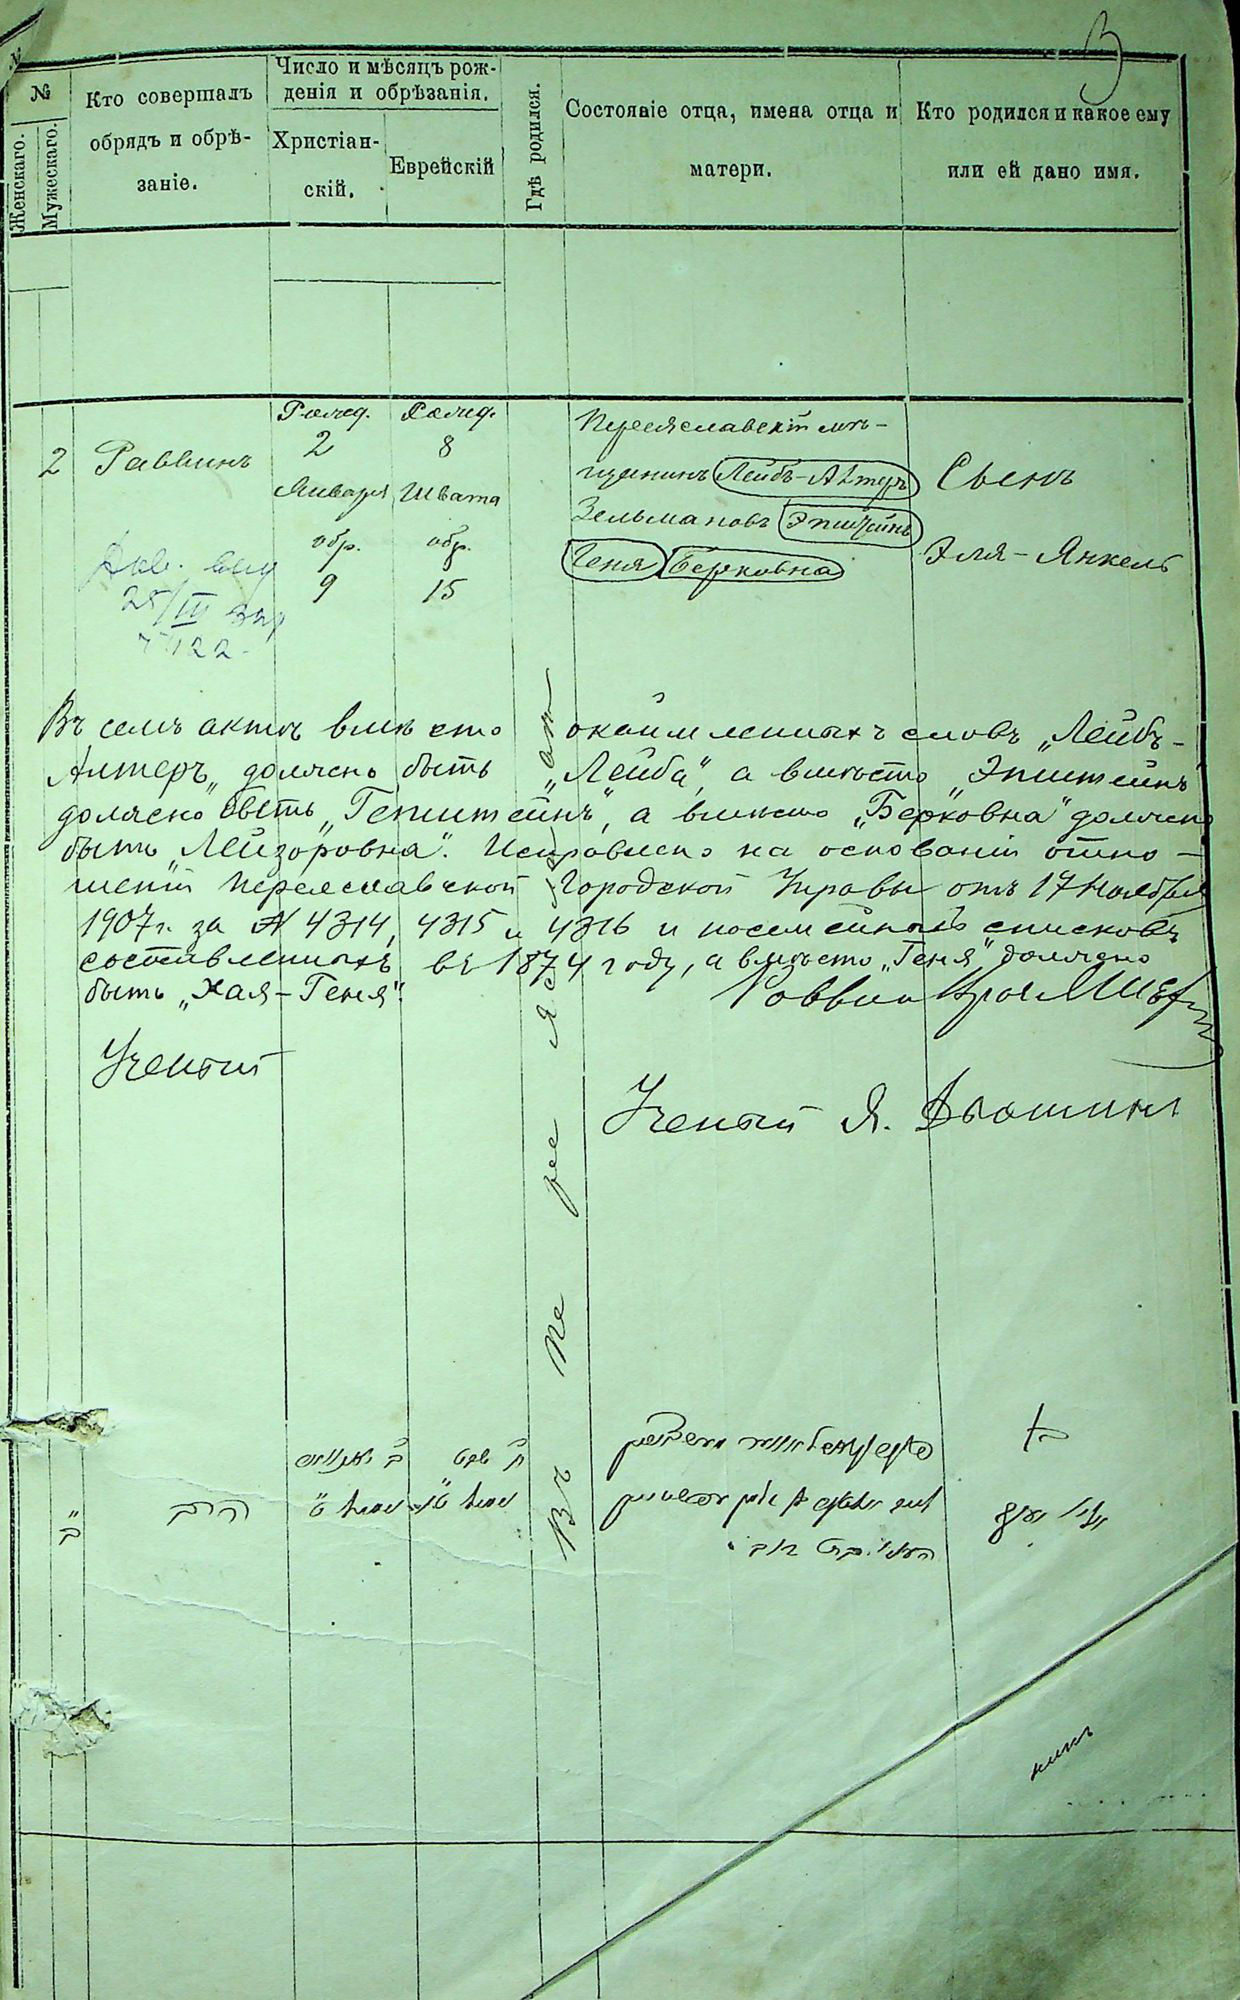 3
№
Женскаго.
Мужескаго.
Кто совершалъ
обрядъ и обрѣ-
заніе.
Число и мѣсяцъ рож-
денія и обрѣзанія.
Христіан-
скій.
Еврейскій
Гдѣ родился.
Состояніе отца, имена отца и
матери.
Кто родился и какое ему
или ей дано имя.
2
Раввинъ
Рожд.
2
Января
обр.
9
Рожд.
8
Швата
обр.
15
Въ Переяс
Переяславскій мѣ-
щанинъ Лейбъ-Алтеръ
Зельмановъ Эпштейнъ
Геня Берковна
Сынъ
Эля-Янкель
25/III
Въ семъ актѣ вмѣсто окаймленныхъ словъ „Лейбъ-
Алтеръ„ должно быть „Лейба„, а вмѣсто „Эпштейнъ
должно быть „Гепштейнъ„, а вмѣсто „Берковна" должно
быть „Лейзоровна". Исправлено на основаніи отно-
шеній Переяславской Городской Управы отъ 17 Ноября
1907 г. за № 4314, 4315 и 4316 и посемейныхъ списковъ
составленныхъ въ 1874 году, а вмѣсто „Геня" должно
быть „Хая-Геня".
Раввин
Ученый
Ученый Я.
ב"
הרב